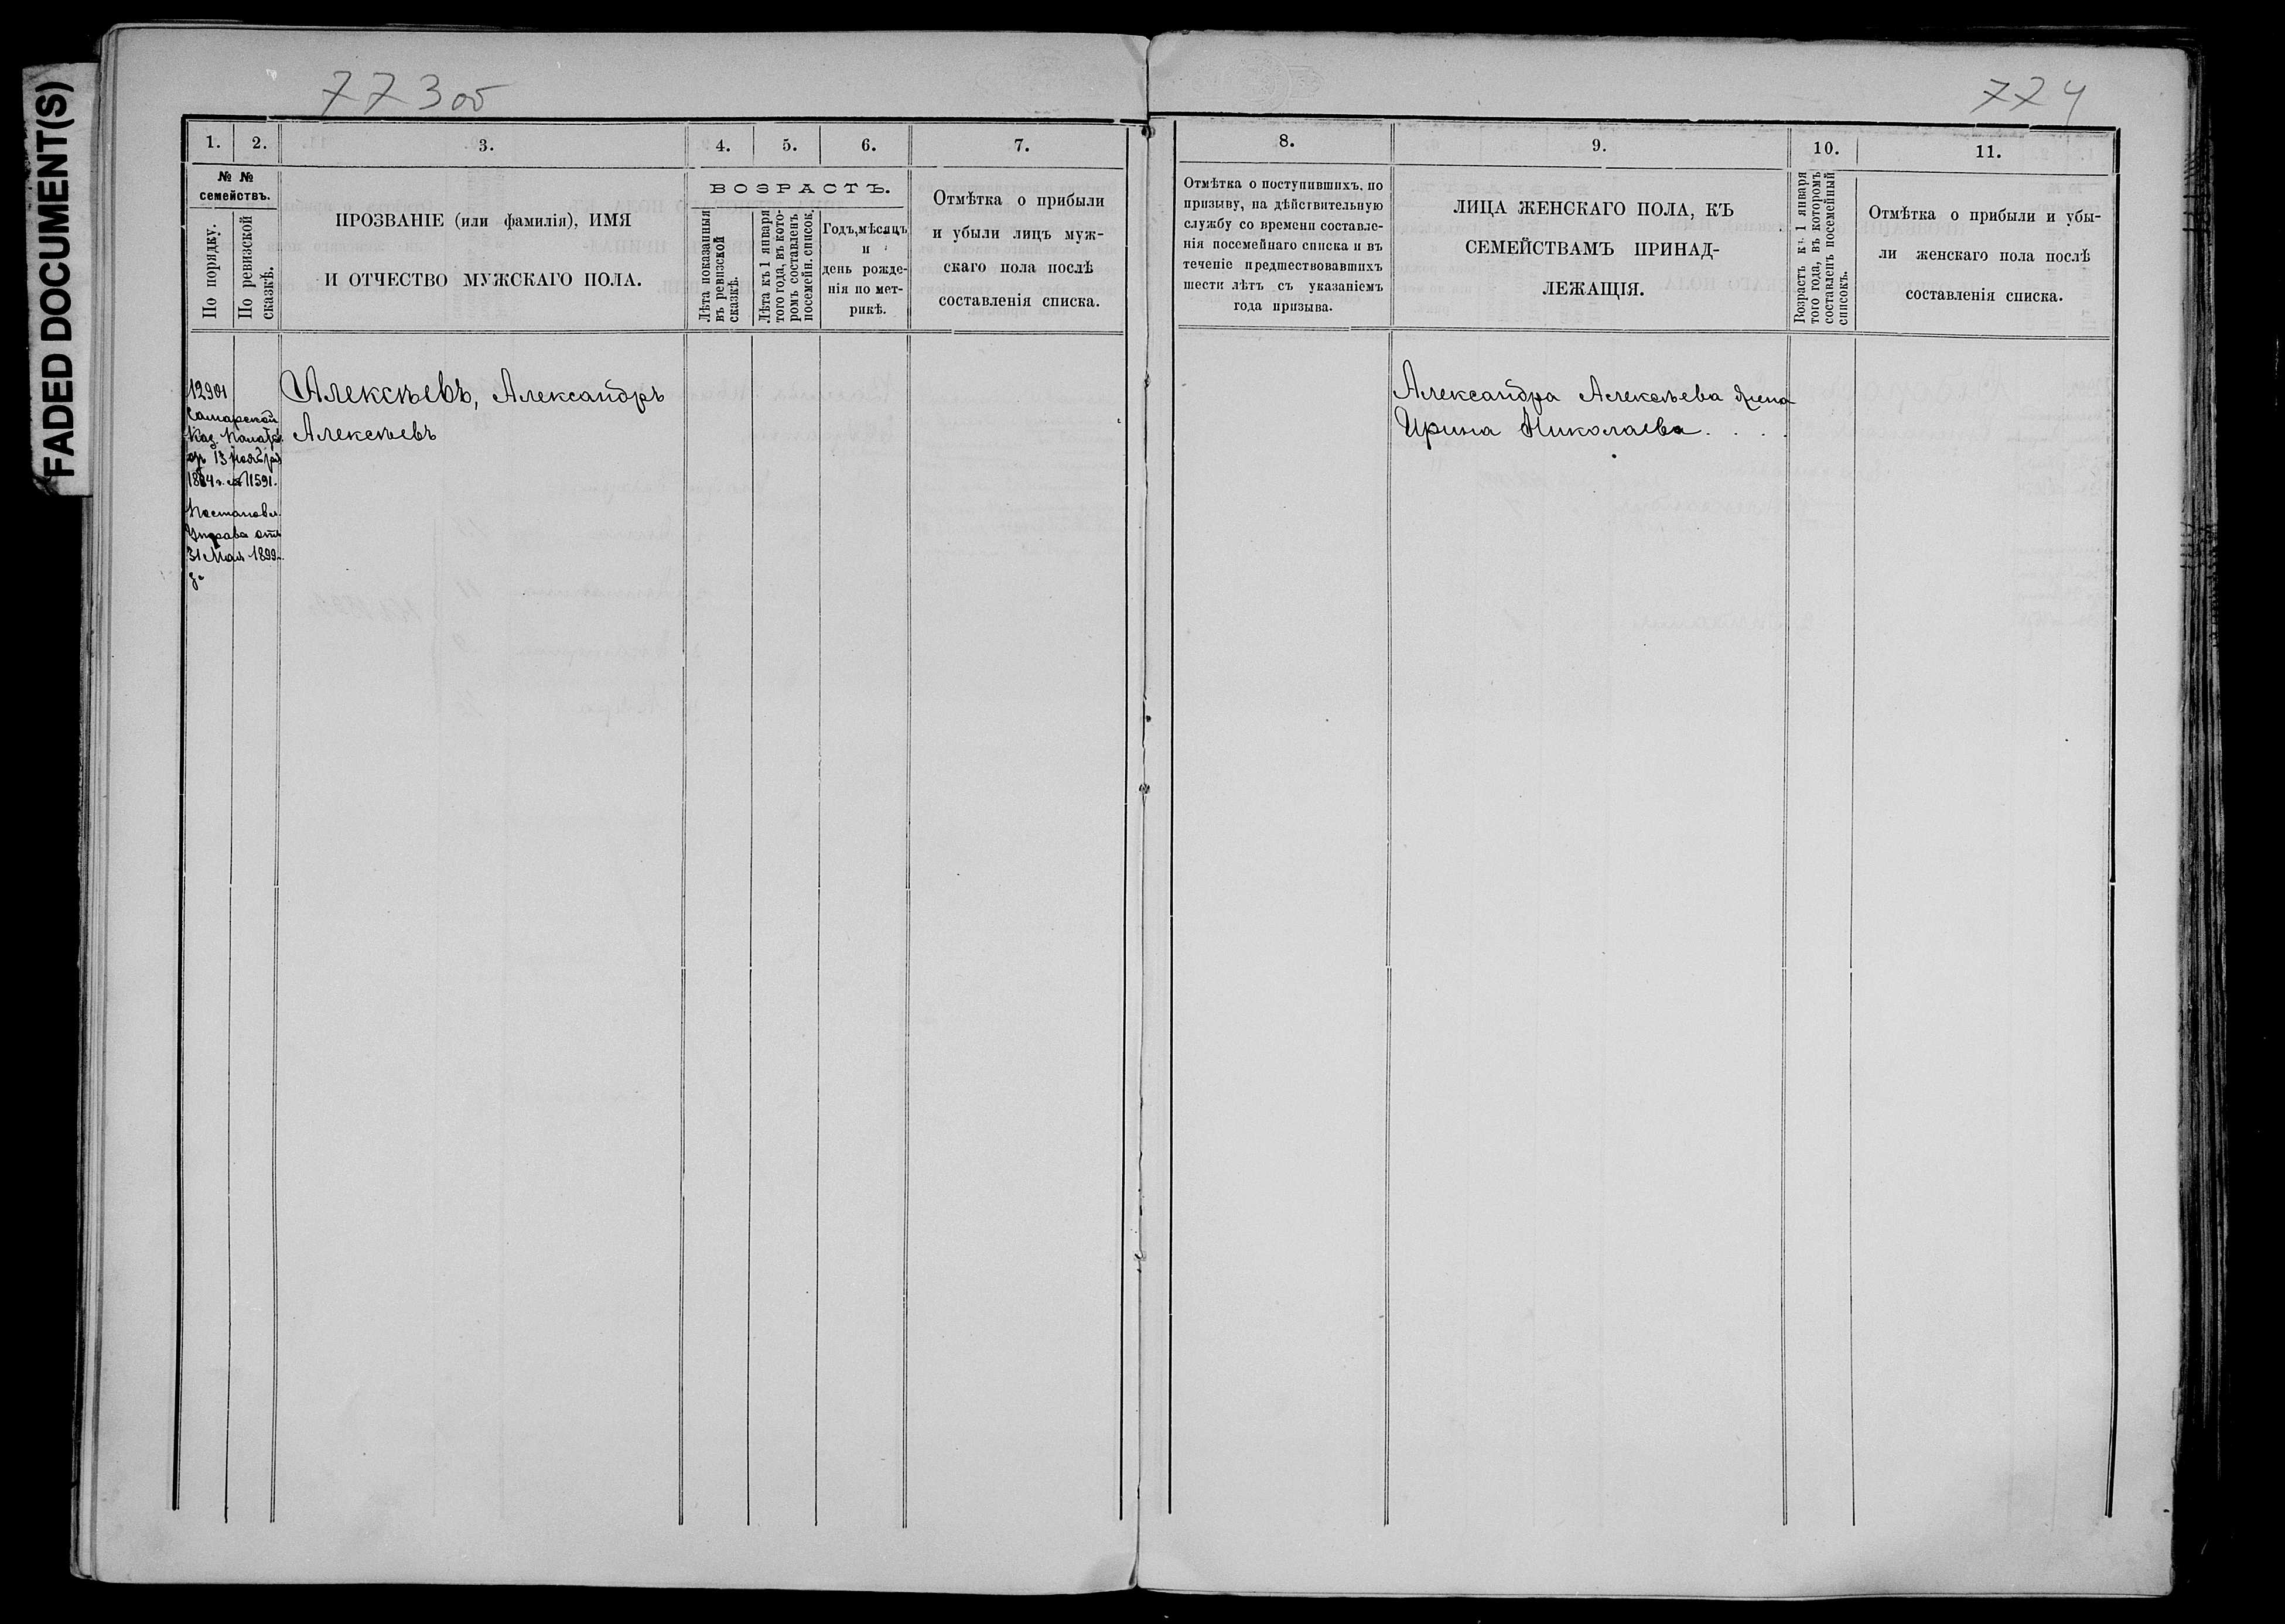 FADED DOCUMENT(S)
773об
774
1.
2.
3.
4.
5.
6.
7.
№ №
семействъ.
По порядку.
По ревизской
сказкѣ.
ПРОЗВАНІЕ (или фамилія), ИМЯ
И ОТЧЕСТВО МУЖСКАГО ПОЛА.
ВОЗРАСТЪ.
Лѣта показанныя
въ ревизской
сказкѣ.
Лѣта къ 1 января
того года, въ кото-
ромъ составленъ
посемейн. список.
Годъ, мѣсяцъ
и
день рожде-
нія по мет-
рикѣ.
Отмѣтка о прибыли
и убыли лицъ муж-
скаго пола послѣ
составленія списка.
12901
Самарской
Каз. Палаты
13 ноября
11591.
Постановл.
Управа отъ
31 Мая 1899
Алексѣевъ, Александръ
Алексѣевъ
8.
9.
10.
11.
Отмѣтка о поступившихъ, по
призыву, на дѣйствительную
службу со времени составле-
нія посемейнаго списка и въ
теченіе предшествовавшихъ
шести лѣтъ съ указаніемъ
года призыва.
ЛИЦА ЖЕНСКАГО ПОЛА, КЪ
СЕМЕЙСТВАМЪ ПРИНАД-
ЛЕЖАЩІЯ.
Возрастъ къ 1 января
того года, въ которомъ
составленъ посемейный
списокъ.
Отмѣтка о прибыли и убы-
ли женскаго пола послѣ
составленія списка.
Александра Алексѣева жена
Ирина Николаева. . . .